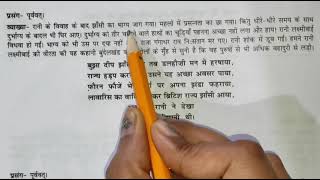 प्रसंग- पूर्ववत्।
व्याख्या- रानी के विवाह के बाद झाँसी का भाग्य जाग गया। महलों में प्रसन्नता का छा गया। किन्तु धीरे-धीरे समय के साथ
दुर्भाग्य के बादल भी घिर आए। दुर्भाग्य को तीर चलाने वाले हाथों का चूड़ियाँ पहनना अच्छा नहीं लगा और हाय! रानी लक्ष्मीबाई
विधवा हो गई। भाग्य को भी उस पर दया नहीं राजा गंगाधर राव निःसंतान मर गए। रानी शोक में डूब गई। हमने रानी
लक्ष्मीबाई की वीरता की यह कहानी बुंदेलखंड के मुँह से सुनी है कि वह पुरुषों से भी अधिक बहादुरी से लड़ी।
बुझा दीप झाँसी तब डलहौजी मन में हरषाया,
राज्य हड़प करने यह अच्छा अवसर पाया,
फ़ौरन फ़ौजें भेज पर अपना झंडा फहराया,
लावारिस का वारिस कर ब्रिटिश राज्य झाँसी आया,
रानी ने देखा
थी।
प्रसंग- पूर्ववत्।